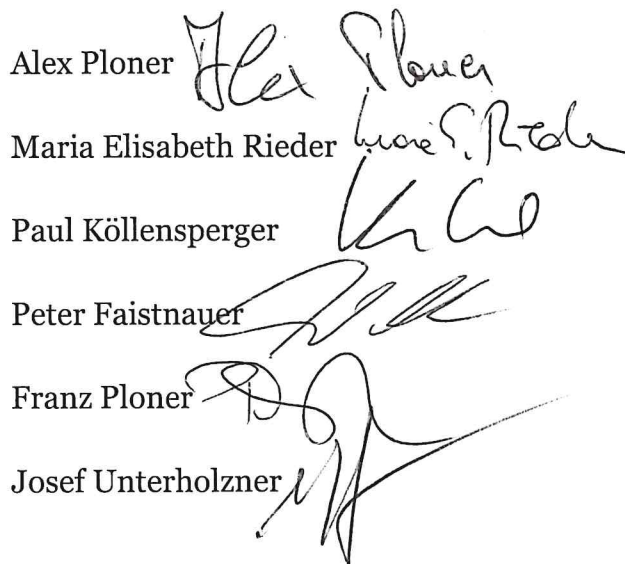 Alex Ploner Alex Ploner
Maria Elisabeth Rieder
Paul Köllensperger
Peter Faistnauer
Franz Ploner
Josef Unterholzner